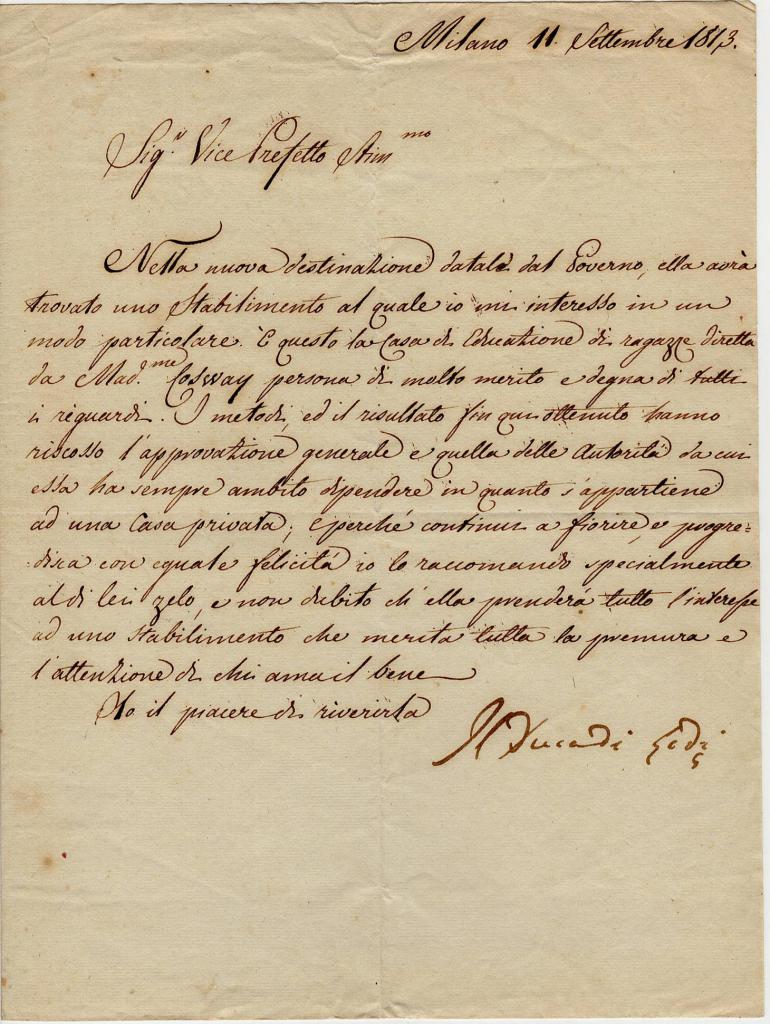 Milano 11 Settembre 1813.
Sig.r Vice Prefetto Stim.mo
Nella nuova destinazione datale dal Governo, ella avrà
trovato uno Stabilimento al quale io mi interesso in un
modo particolare. È questo la Casa di Educazione di ragazze diretta
da Mad.me Cosway persona di molto merito e degna di tutti
i riguardi. I metodi, ed il risultato fin qui ottenuto hanno
riscosso l'approvazione generale e quella delle Autorità da cui
essa ha sempre ambito dipendere in quanto s'appartiene
ad una Casa privata; e perché continui a fiorire, e progre=
=disca con eguale felicità io lo raccomando specialmente
al di lei zelo, e non dubito ch'ella prenderà tutto l'interesse
ad uno stabilimento che merita tutta la premura e
l'attenzione di chi ama il bene
Ho il piacere di riverirla
Il Duca di Lodi